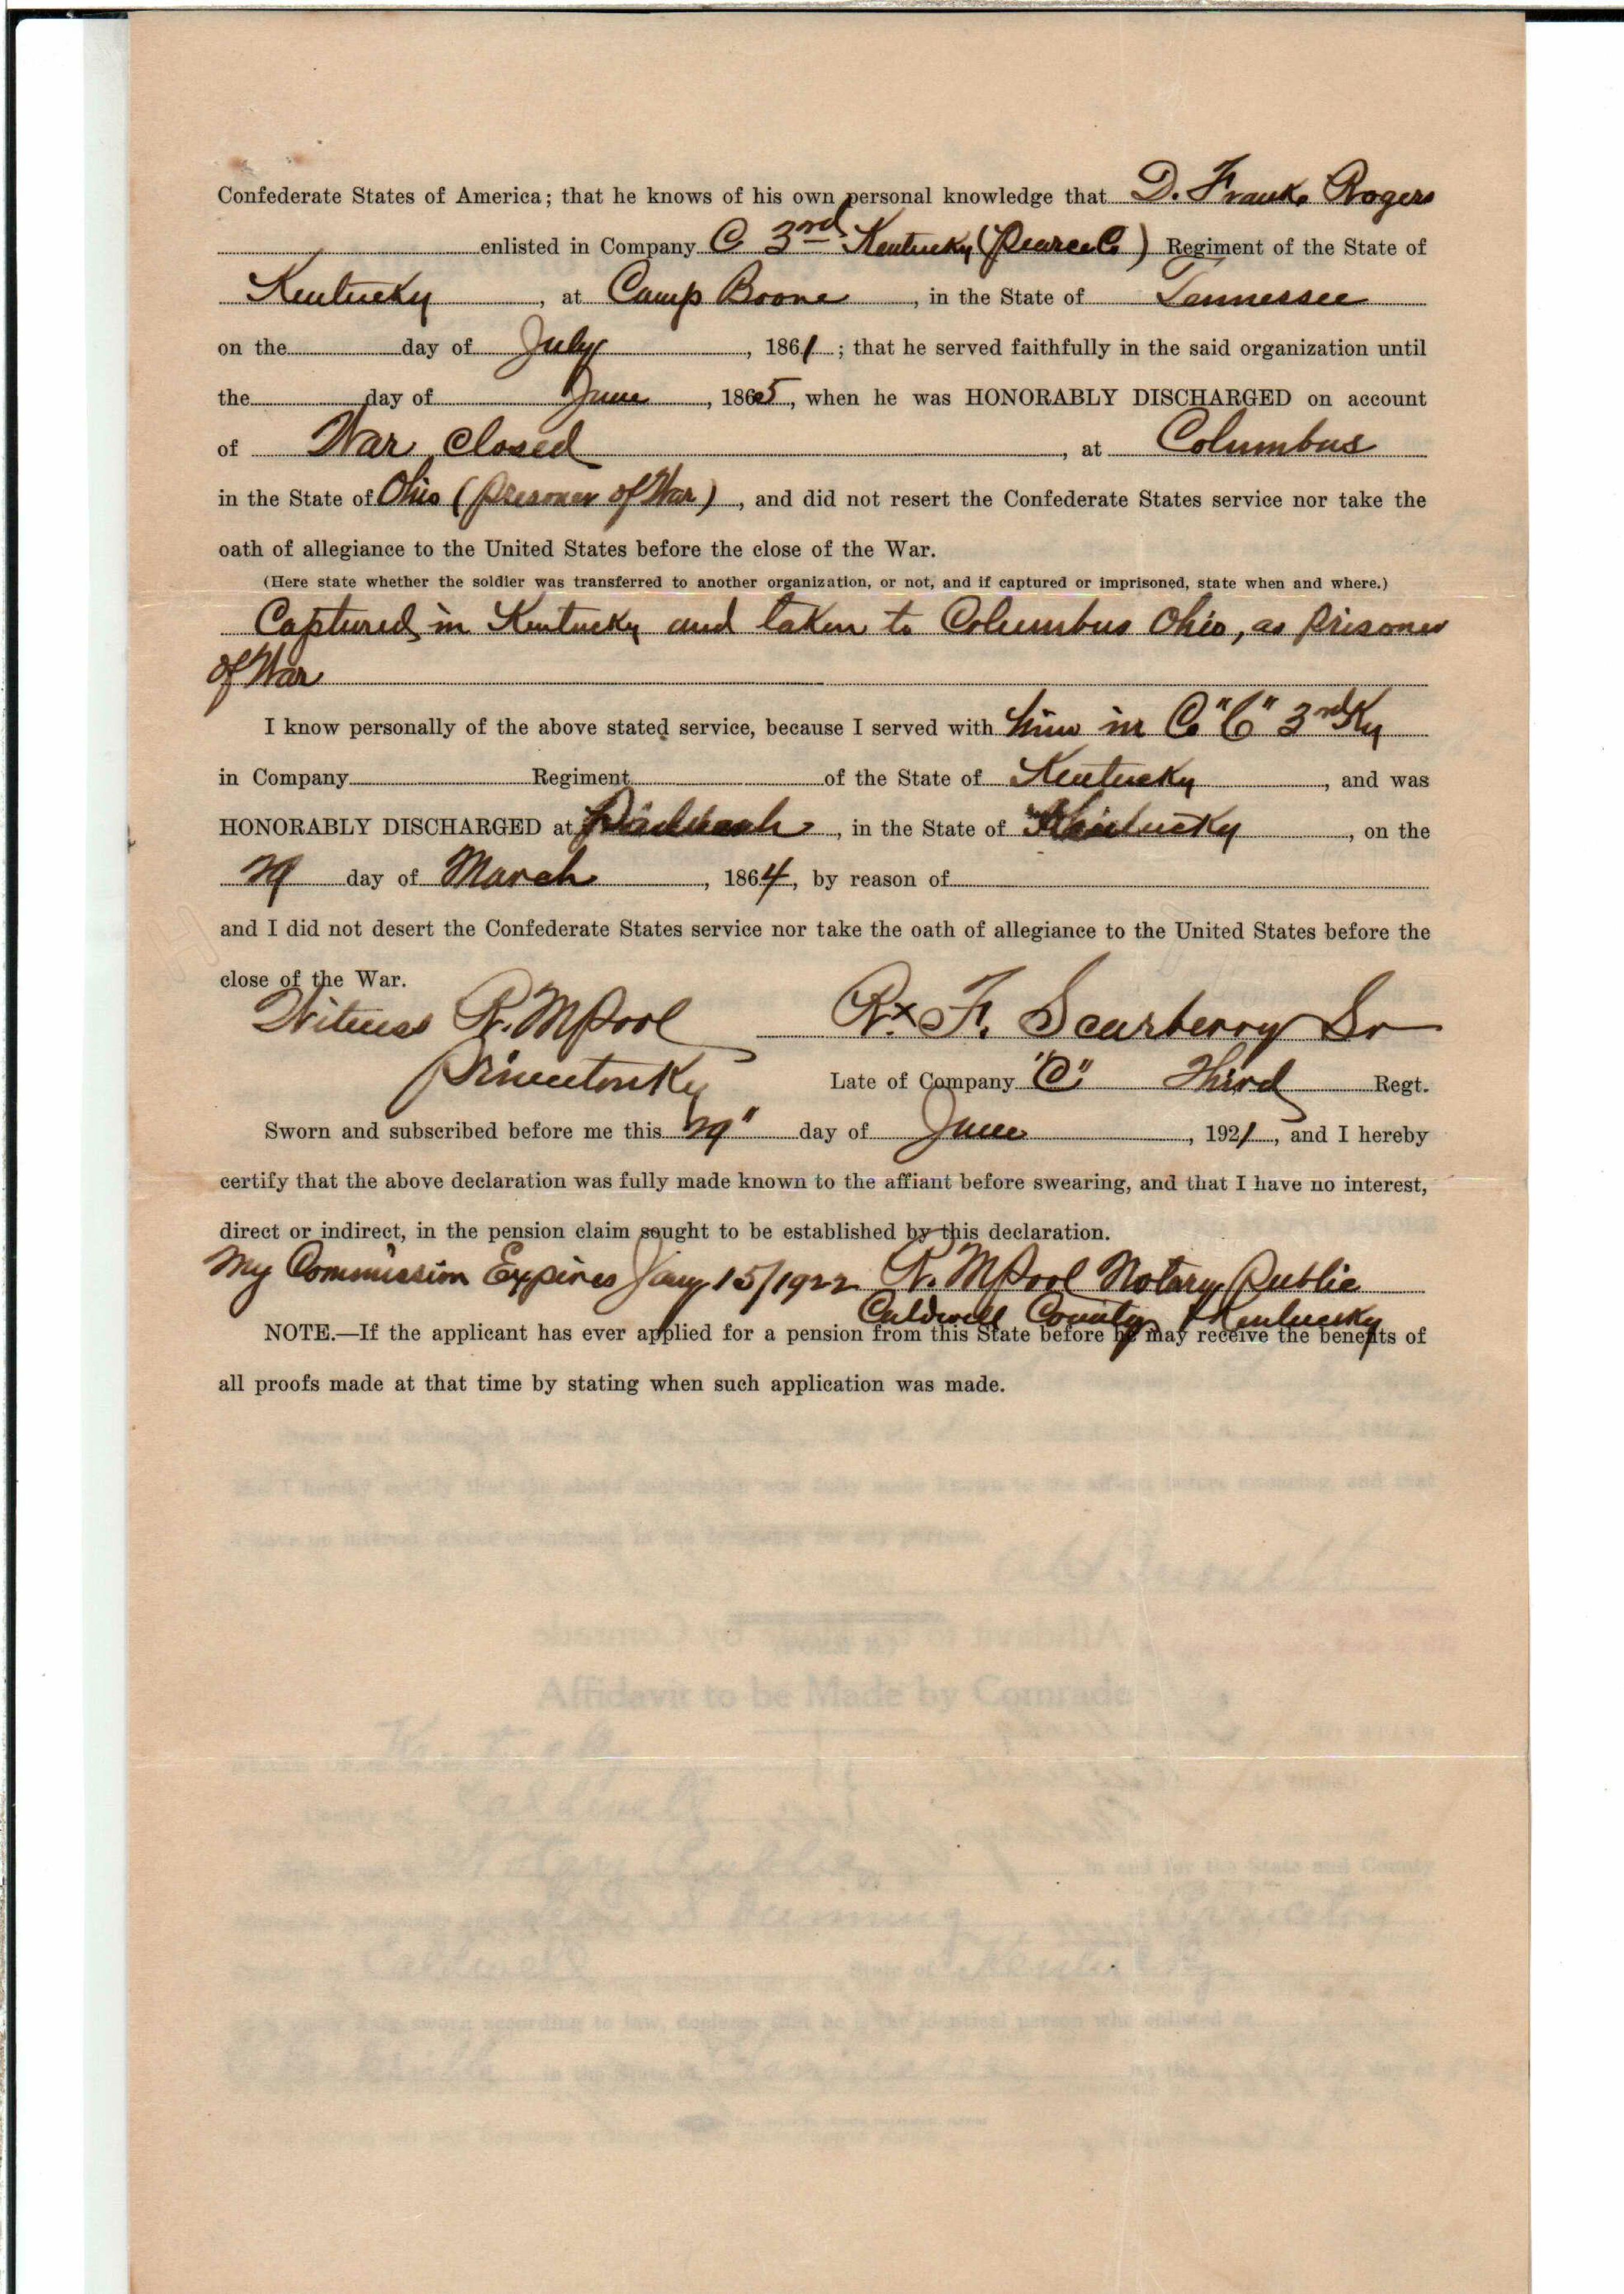 Confederate States of America; that he knows of his own personal knowledge that D. Frank. Rogers
enlisted in Company C 3rd Kentucky (Pearce Co) Regiment of the State of
Kentucky, at Camp Boone, in the State of Tennessee
on the day of July, 1861; that he served faithfully in the said organization until
the day of June, 1865, when he was HONORABLY DISCHARGED on account
of War closed, at Columbus
in the State of Ohio (prisoner of War), and did not resert the Confederate States service nor take the
oath of allegiance to the United States before the close of the War.
(Here state whether the soldier was transferred to another organization, or not, and if captured or imprisoned, state when and where.)
Captured in Kentucky and taken to Columbus Ohio, as prisoner
of War
I know personally of the above stated service, because I served with him in Co "C" 3rd Ky
in Company Regiment of the State of Kentucky, and was
HONORABLY DISCHARGED at Paducah, in the State of Kentucky, on the
29 day of March, 1864, by reason of
and I did not desert the Confederate States service nor take the oath of allegiance to the United States before the
close of the War.
Witness R. M Pool R. x F. Scurberry Sr
Princeton Ky Late of Company "C" Third Regt.
Sworn and subscribed before me this 29" day of June, 1921, and I hereby
certify that the above declaration was fully made known to the affiant before swearing, and that I have no interest,
direct or indirect, in the pension claim sought to be established by this declaration.
My Commission Expires Jany 15/1922 R. M Pool Notary Public
Caldwell County Kentucky
NOTE.—If the applicant has ever applied for a pension from this State before he may receive the benefits of
all proofs made at that time by stating when such application was made.
Affidavit to be Made by Comrade